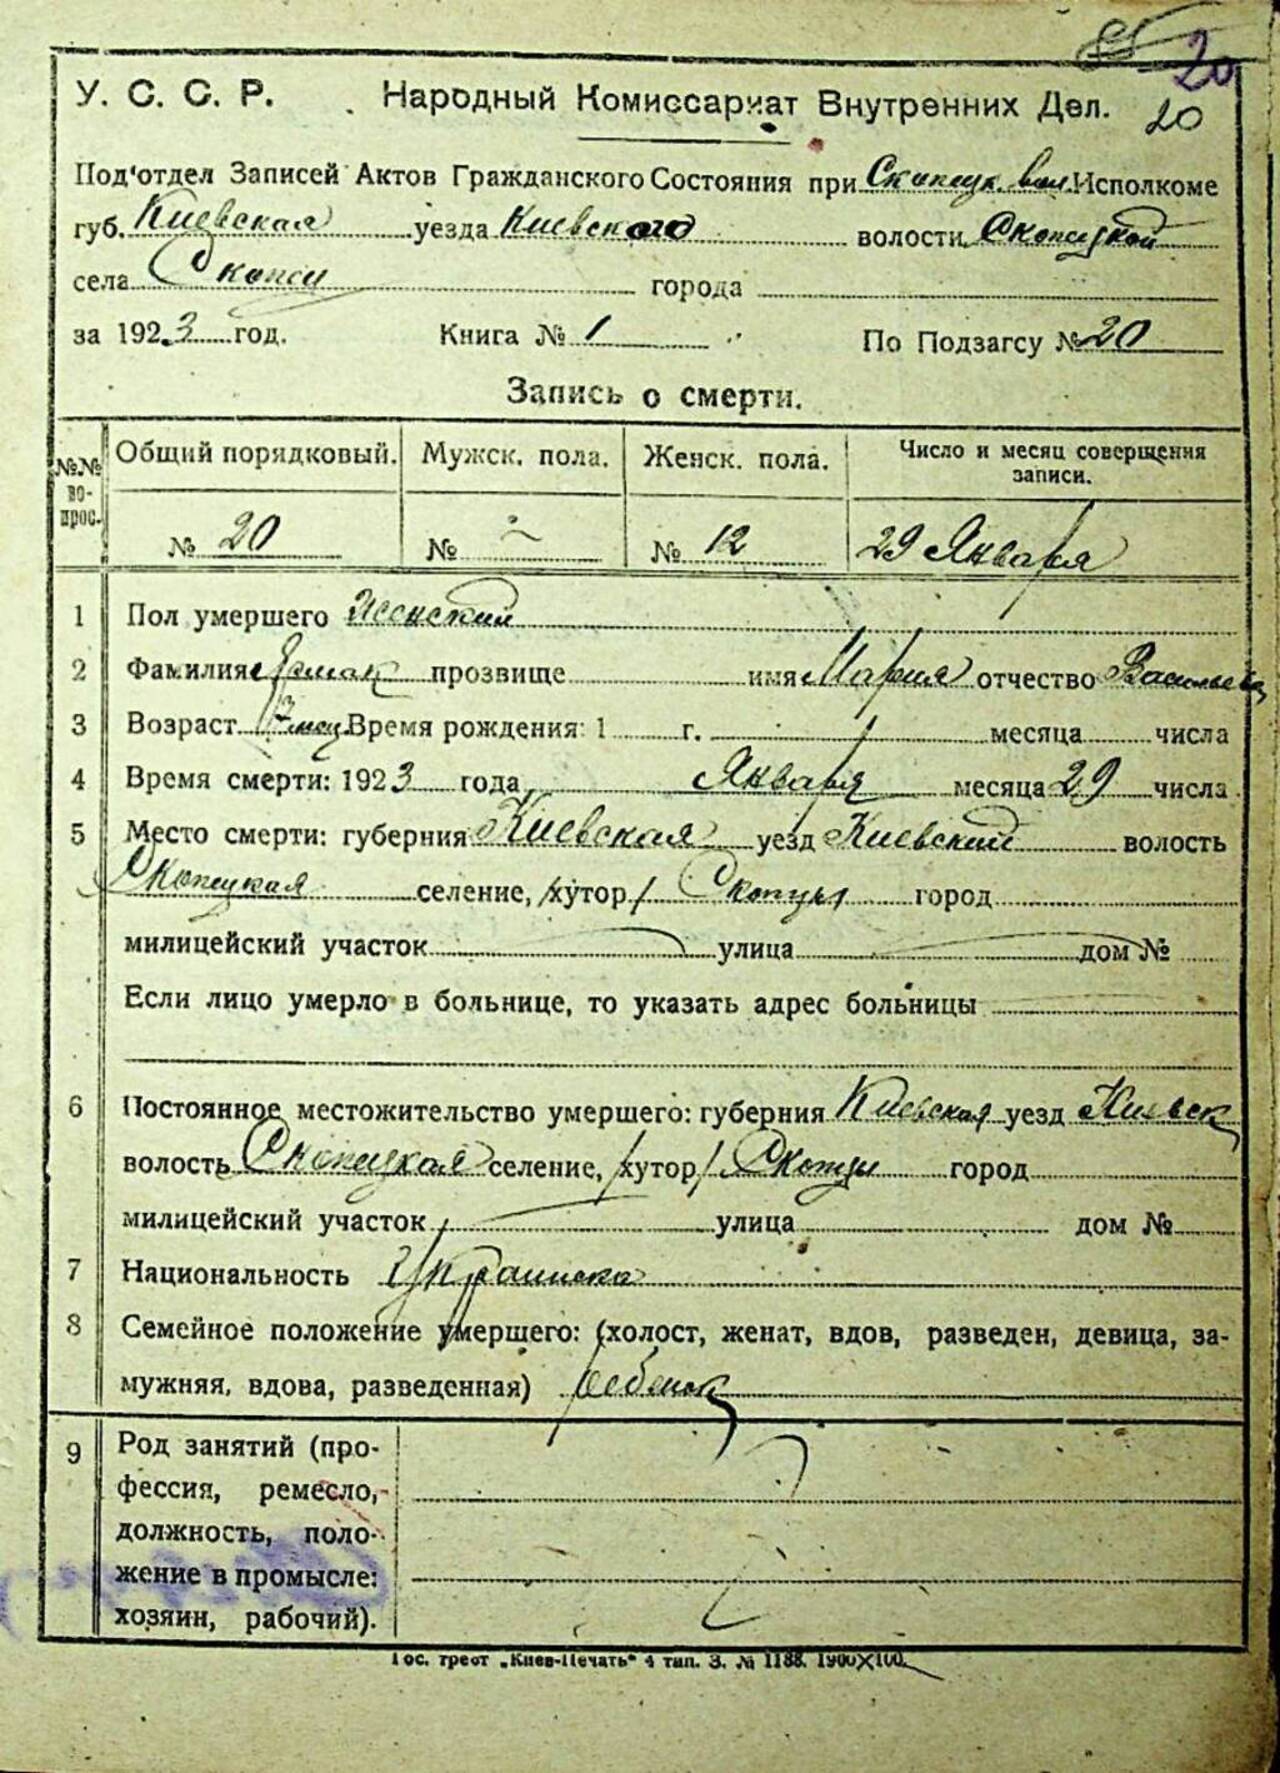 20
У. С. С. Р. Народный Комиссариат Внутренних Дел. 20
Под'отдел Записей Актов Гражданского Состояния при Скопецк. вол. Исполкоме
губ. Киевская уезда Киевского волости Скопецкой
села Скопцы города
за 1923 год. Книга № 1 По Подзагсу № 20
Запись о смерти.
№№ вопрос. Общий порядковый. Мужск. пола. Женск. пола. Число и месяц совершения записи.
№ 20 № № 12 29 Января
1 Пол умершего Женский
2 Фамилия Ярмак прозвище имя Мария отчество
3 Возраст мец Время рождения: 1 г. месяца числа
4 Время смерти: 1923 года Января месяца 29 числа
5 Место смерти: губерния Киевская уезд Киевский волость
Скопецкая селение, /хутор/ Скопцы город
милицейский участок улица дом №
Если лицо умерло в больнице, то указать адрес больницы
6 Постоянное местожительство умершего: губерния Киевская уезд Киевск
волость Скопецкая селение, /хутор/ Скопцы город
милицейский участок улица дом №
7 Национальность Украинска
8 Семейное положение умершего: (холост, женат, вдов, разведен, девица, за-
мужняя, вдова, разведенная) ребенок
9 Род занятий (про-
фессия, ремесло,
должность, поло-
жение в промысле:
хозяин, рабочий).
Гос. трест „Киев-Печать“ 4 тип. З. № 1188. 1900×100.